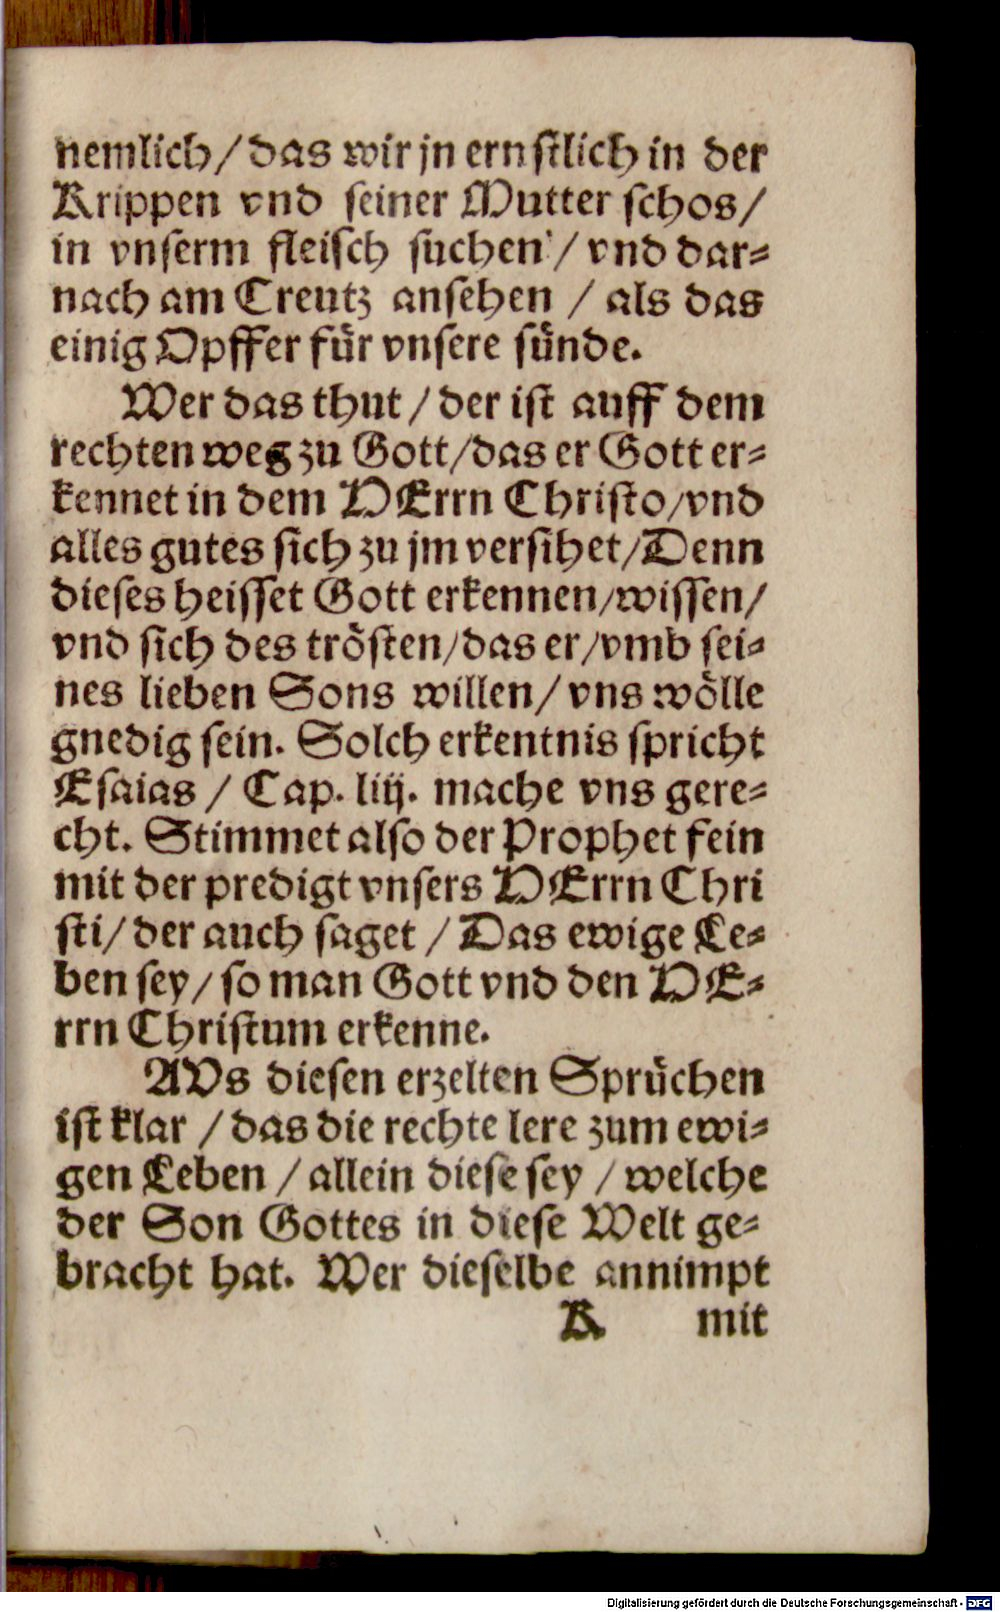 nemlich/ das wir jn ernstlich in der
Krippen vnd seiner Mutter schos/
in vnserm fleisch suchen / vnd dar⸗
nach am Creutz ansehen / als das
einig Opffer für vnsere sünde.
Wer das thut / der ist auff dem
rechten weg zu Gott/das er Gott er⸗
kennet in dem HErrn Christo/vnd
alles gutes sich zu jm versihet/Denn
dieses heisset Gott erkennen/wissen/
vnd sich des trösten/das er/vmb sei⸗
nes lieben Sons willen/ vns wölle
gnedig sein. Solch erkentnis spricht
Esaias / Cap. liij. mache vns gere⸗
cht. Stimmet also der Prophet fein
mit der predigt vnsers HErrn Chri
sti/ der auch saget / Das ewige Le⸗
ben sey/ so man Gott vnd den HE⸗
rrn Christum erkenne.
AVs diesen erzelten Sprüchen
ist klar / das die rechte lere zum ewi⸗
gen Leben / allein diese sey / welche
der Son Gottes in diese Welt ge⸗
bracht hat. Wer dieselbe annimpt
K mit
Digitalisierung gefördert durch die Deutsche Forschungsgemeinschaft - DFG